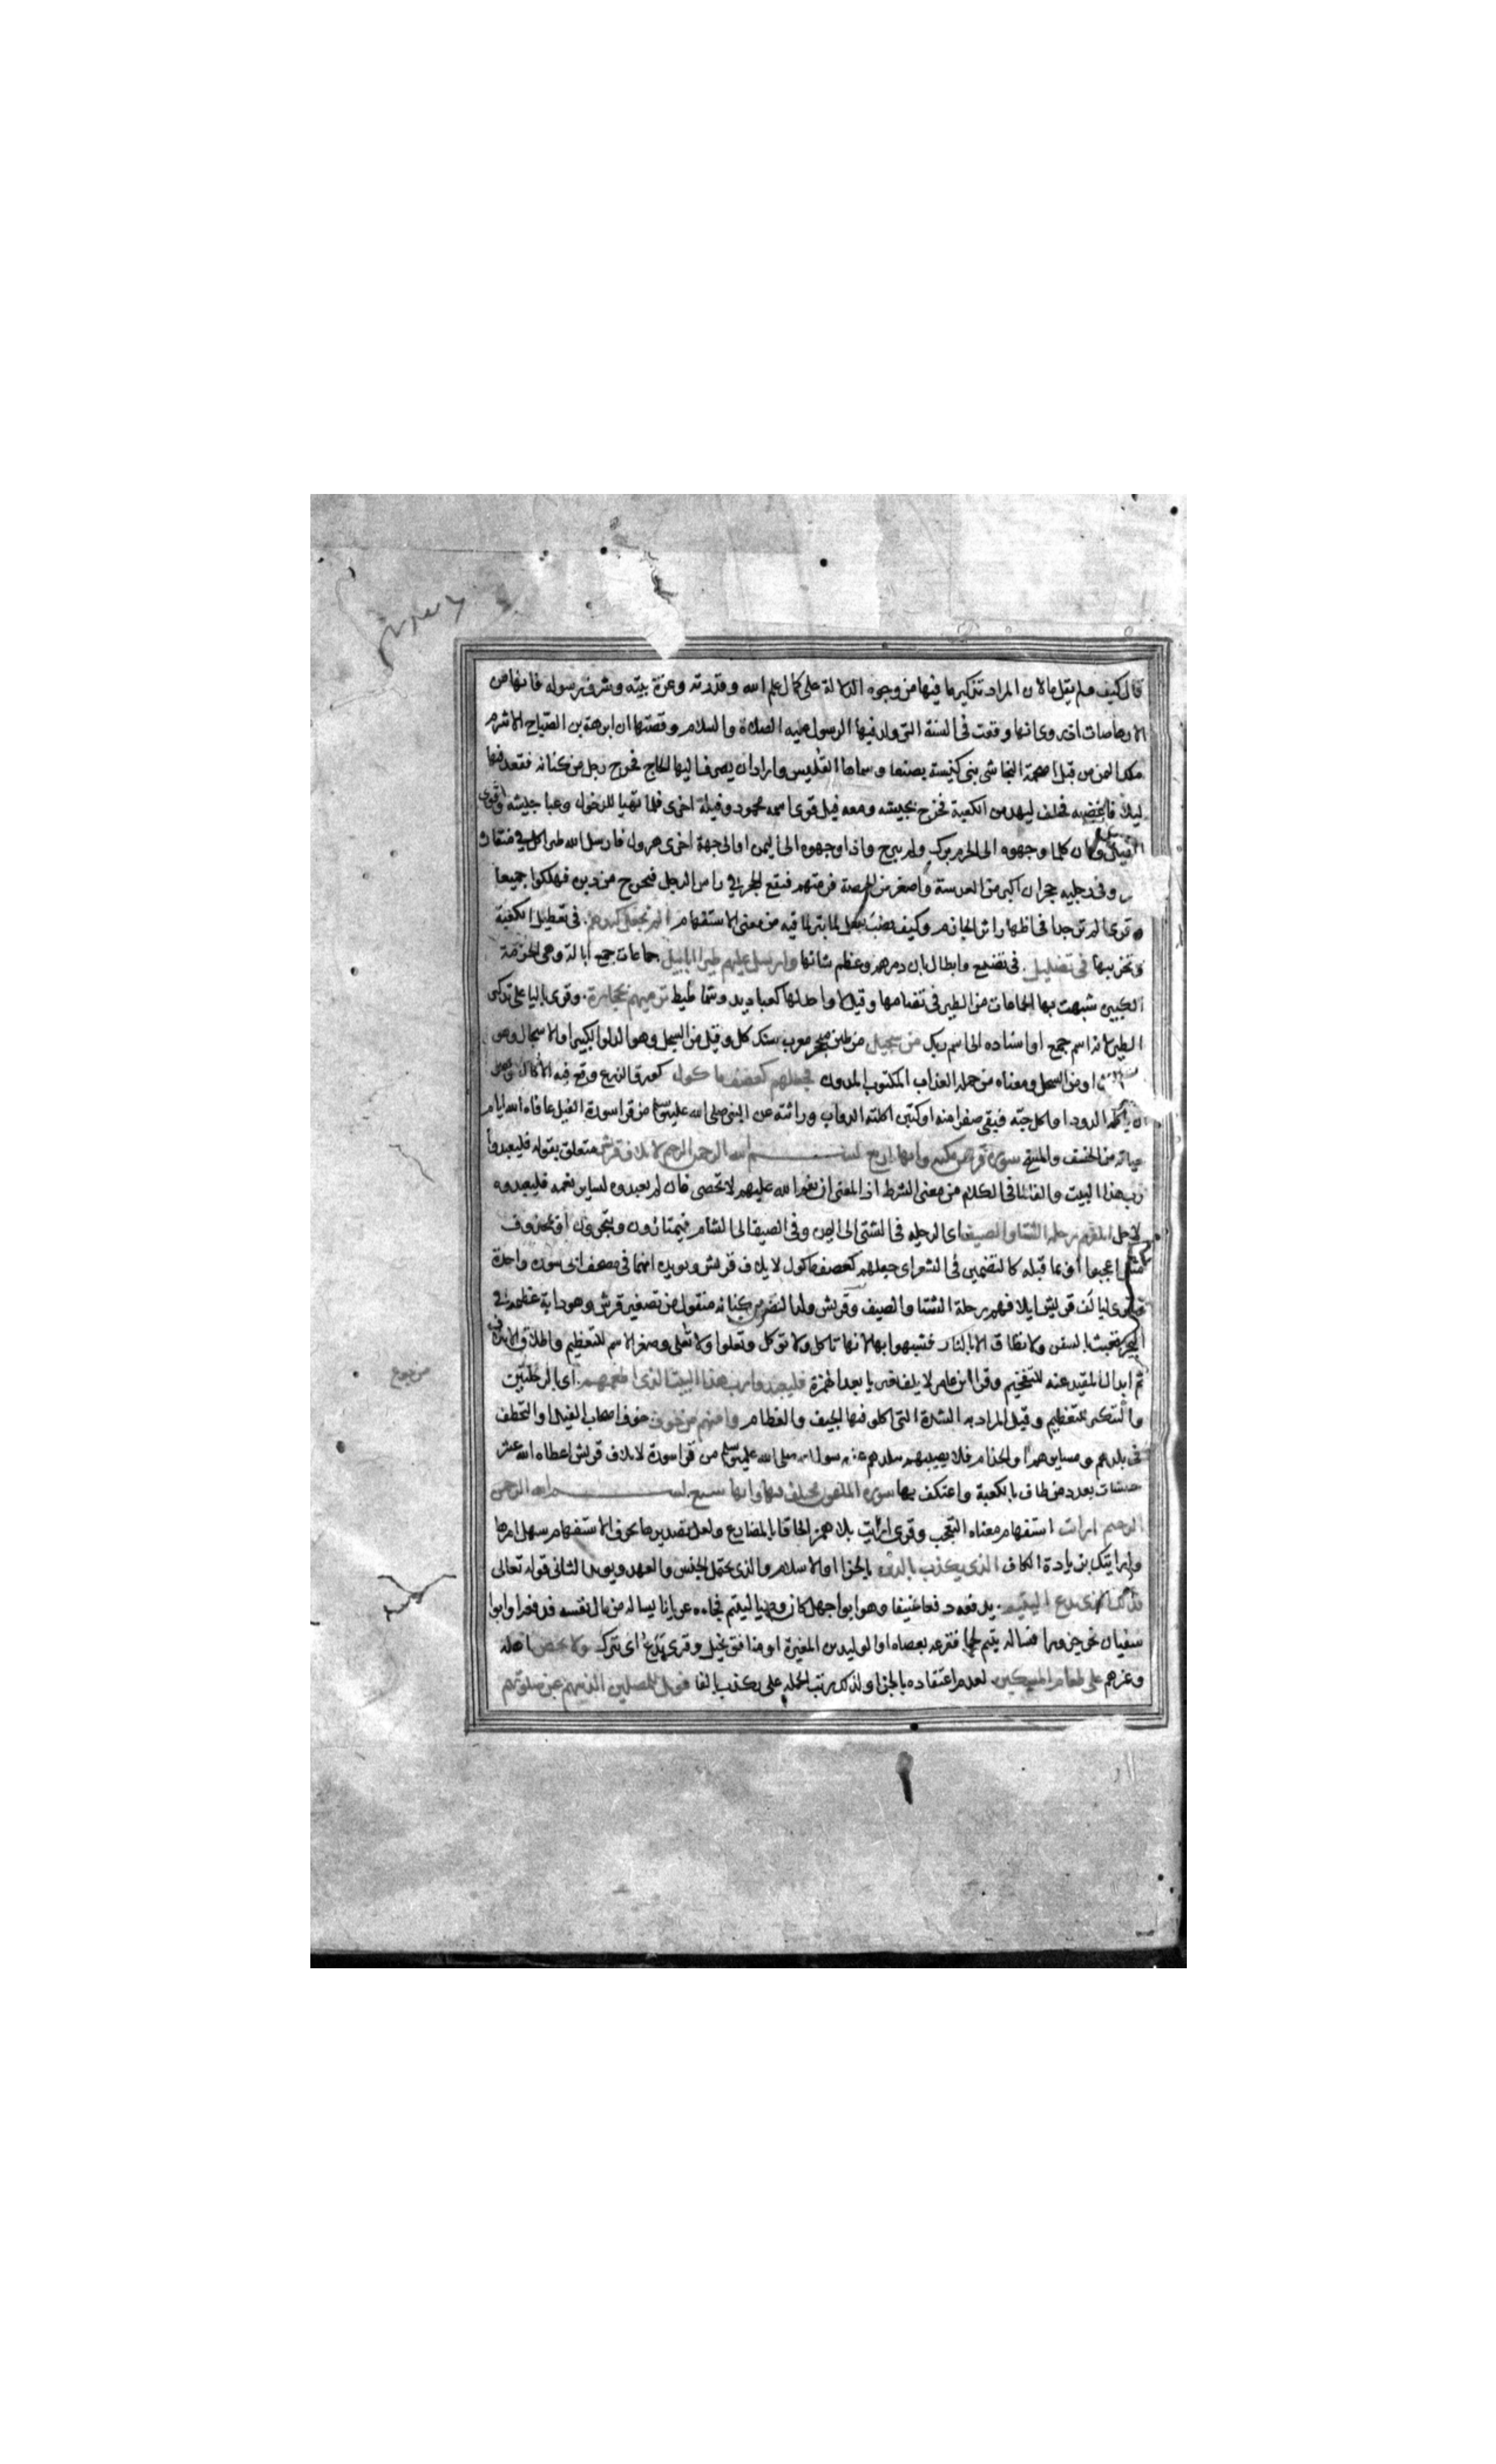 قال كيف ولم يقل ما لان المراد تذكير ما فيها من وجوه الدلالة على كمال علم الله وقدرته وعزة بيته وشرف رسوله فانها من
الارهاصات اذ روى انها وقعت فى السنة التى ولد فيها الرسول عليه الصلاة والسلام وقصتها ان ابرهة بن الصباح الاشرم
ملك اليمن من قبل اصحمة النجاشى بنى كنيسة بصنعا وسماها القليس واراد ان يصرف اليها الحاج فخرج رجل من كنانه فقعد فيها
ليلا فاغضبه فحلف ليهدمن الكعبة فخرج بجيشه ومعه فيل قوى اسمه محمود وفيلة اخرى فلما تهيا للدخول وعبا جيشه
الفيل وكان كلما وجهوه الى الحرم برك ولم يبرح واذا وجهوه الى اليمن او الى جهة اخرى هرول فارسل الله طيرا كل فى منقاره
وفى رجليه حجران اكبر من العدسة واصغر من الحمصة فرمتهم فيقع الحجر فى راس الرجل فيخرج من دبره فهلكوا جميعا
وقرى الم تر جدا فى اظهار اثر الجازم وكيف نصب بفعل لا بتر لما فيه من معنى الاستفهام الم نجعل كيدهم فى تعطيل الكعبة
وتخريبها فى تضليل فى تضييع وابطال بان دمرهم وعظم شانها وارسل عليهم طيرا ابابيل جماعات جمع ابالة وهى الحزمة
الكبيرة شبهت بها الجماعات من الطير فى تضامها وقيل لا واحد لها كعباديد وشماطيط ترميهم بحجارة وقرى باليا على تذكير
الطير لانه اسم جمع او اسناده الى اسم ربك من سجيل من طين متحجر معرب سنك كل وقيل من السجل وهو الدلو الكبير او الاسجال وهو
او من السجل ومعناه من جملة العذاب المكتوب المدون فجعلهم كعصف ماكول كورق الزرع وقع فيه الاكال وهو
ان ياكله الدود او اكل حبه فبقى صفرا منه او كتبن اكلته الدواب وراثته عن النبى صلى الله عليه وسلم من قرا سورة الفيل عافاه الله ايام
حياته من الخسف والمسخ سورة قريش مكية وايها اربع بسم الله الرحمن الرحيم لايلاف قريش متعلق بقوله فليعبدوا
رب هذا البيت والفا لما فى الكلام من معنى الشرط اذ المعنى ان نعم الله عليهم لا تحصى فان لم يعبدوه لساير نعمه فليعبدوه
لاجل ايلافهم رحلة الشتا والصيف اى الرحلة فى الشتى الى اليمن وفى الصيف الى الشام فيمتارون ويتجرون او بمحذوف
مثل اعجبوا او بما قبله كالتضمين فى الشعر اى جعلهم كعصف ماكول لايلاف قريش ويويده انهما فى مصحف ابى سورة واحدة
وقرى ليالف قريش ايلافهم رحلة الشتا والصيف وقريش ولد النضر بن كنانه منقول من تصغير قرش وهو دابة عظيمة فى
البحر تعبث بالسفن ولا تطاق الا بالنار فشبهوا بها لانها تاكل ولا توكل وتعلوا ولا تعلى وصغر الاسم للتعظيم واطلاق الايلاف
ثم ابدال المقيد عنه للتفخيم وقرا ابن عامر لايلاف بغير يا بعد الهمزة فليعبدوا رب هذا البيت الذى اطعمهم اى بالرحلتين
والتنكير للتعظيم وقيل المراد به الشدة التى اكلو فيها الجيف والعظام وامنهم من خوف خوف اصحاب الفيل او التخطف
فى بلدهم ومسايرهم او الجذام فلا يصيبهم ببلدهم عن رسول الله صلى الله عليه وسلم من قرا سورة لايلاف قريش اعطاه الله عشر
حسنات بعدد من طاف بالكعبة واعتكف بها سورة الماعون مختلف فيها وايها سبع بسم الله الرحمن
الرحيم ارايت استفهام معناه التعجب وقرى اريت بلا همز الحاقا بالمضارع ولعل تصديرها بحرف الاستفهام سهل امرها
وارايتك بزيادة الكاف الذى يكذب بالدين بالجزا او الاسلام والذى يحتمل الجنس والعهد ويويد الثانى قوله تعالى
فذلك الذى يدع اليتيم يدفعه دفعا عنيفا وهو ابو اجهل كان وصيا ليتيم فجاءه عريانا يساله من مال نفسه فدفعه او ابوا
سفيان نحر جزورا فساله يتيم لحما فقرعه بعصاه او الوليد بن المغيرة او منافق بخيل وقرى يدع اى يترك ولا يحض اهله
وغيرهم على طعام المسكين لعدم اعتقاده بالجزا ولذلك رتب الجملة على يكذب بالفا فويل للمصلين الذين هم عن صلوتهم